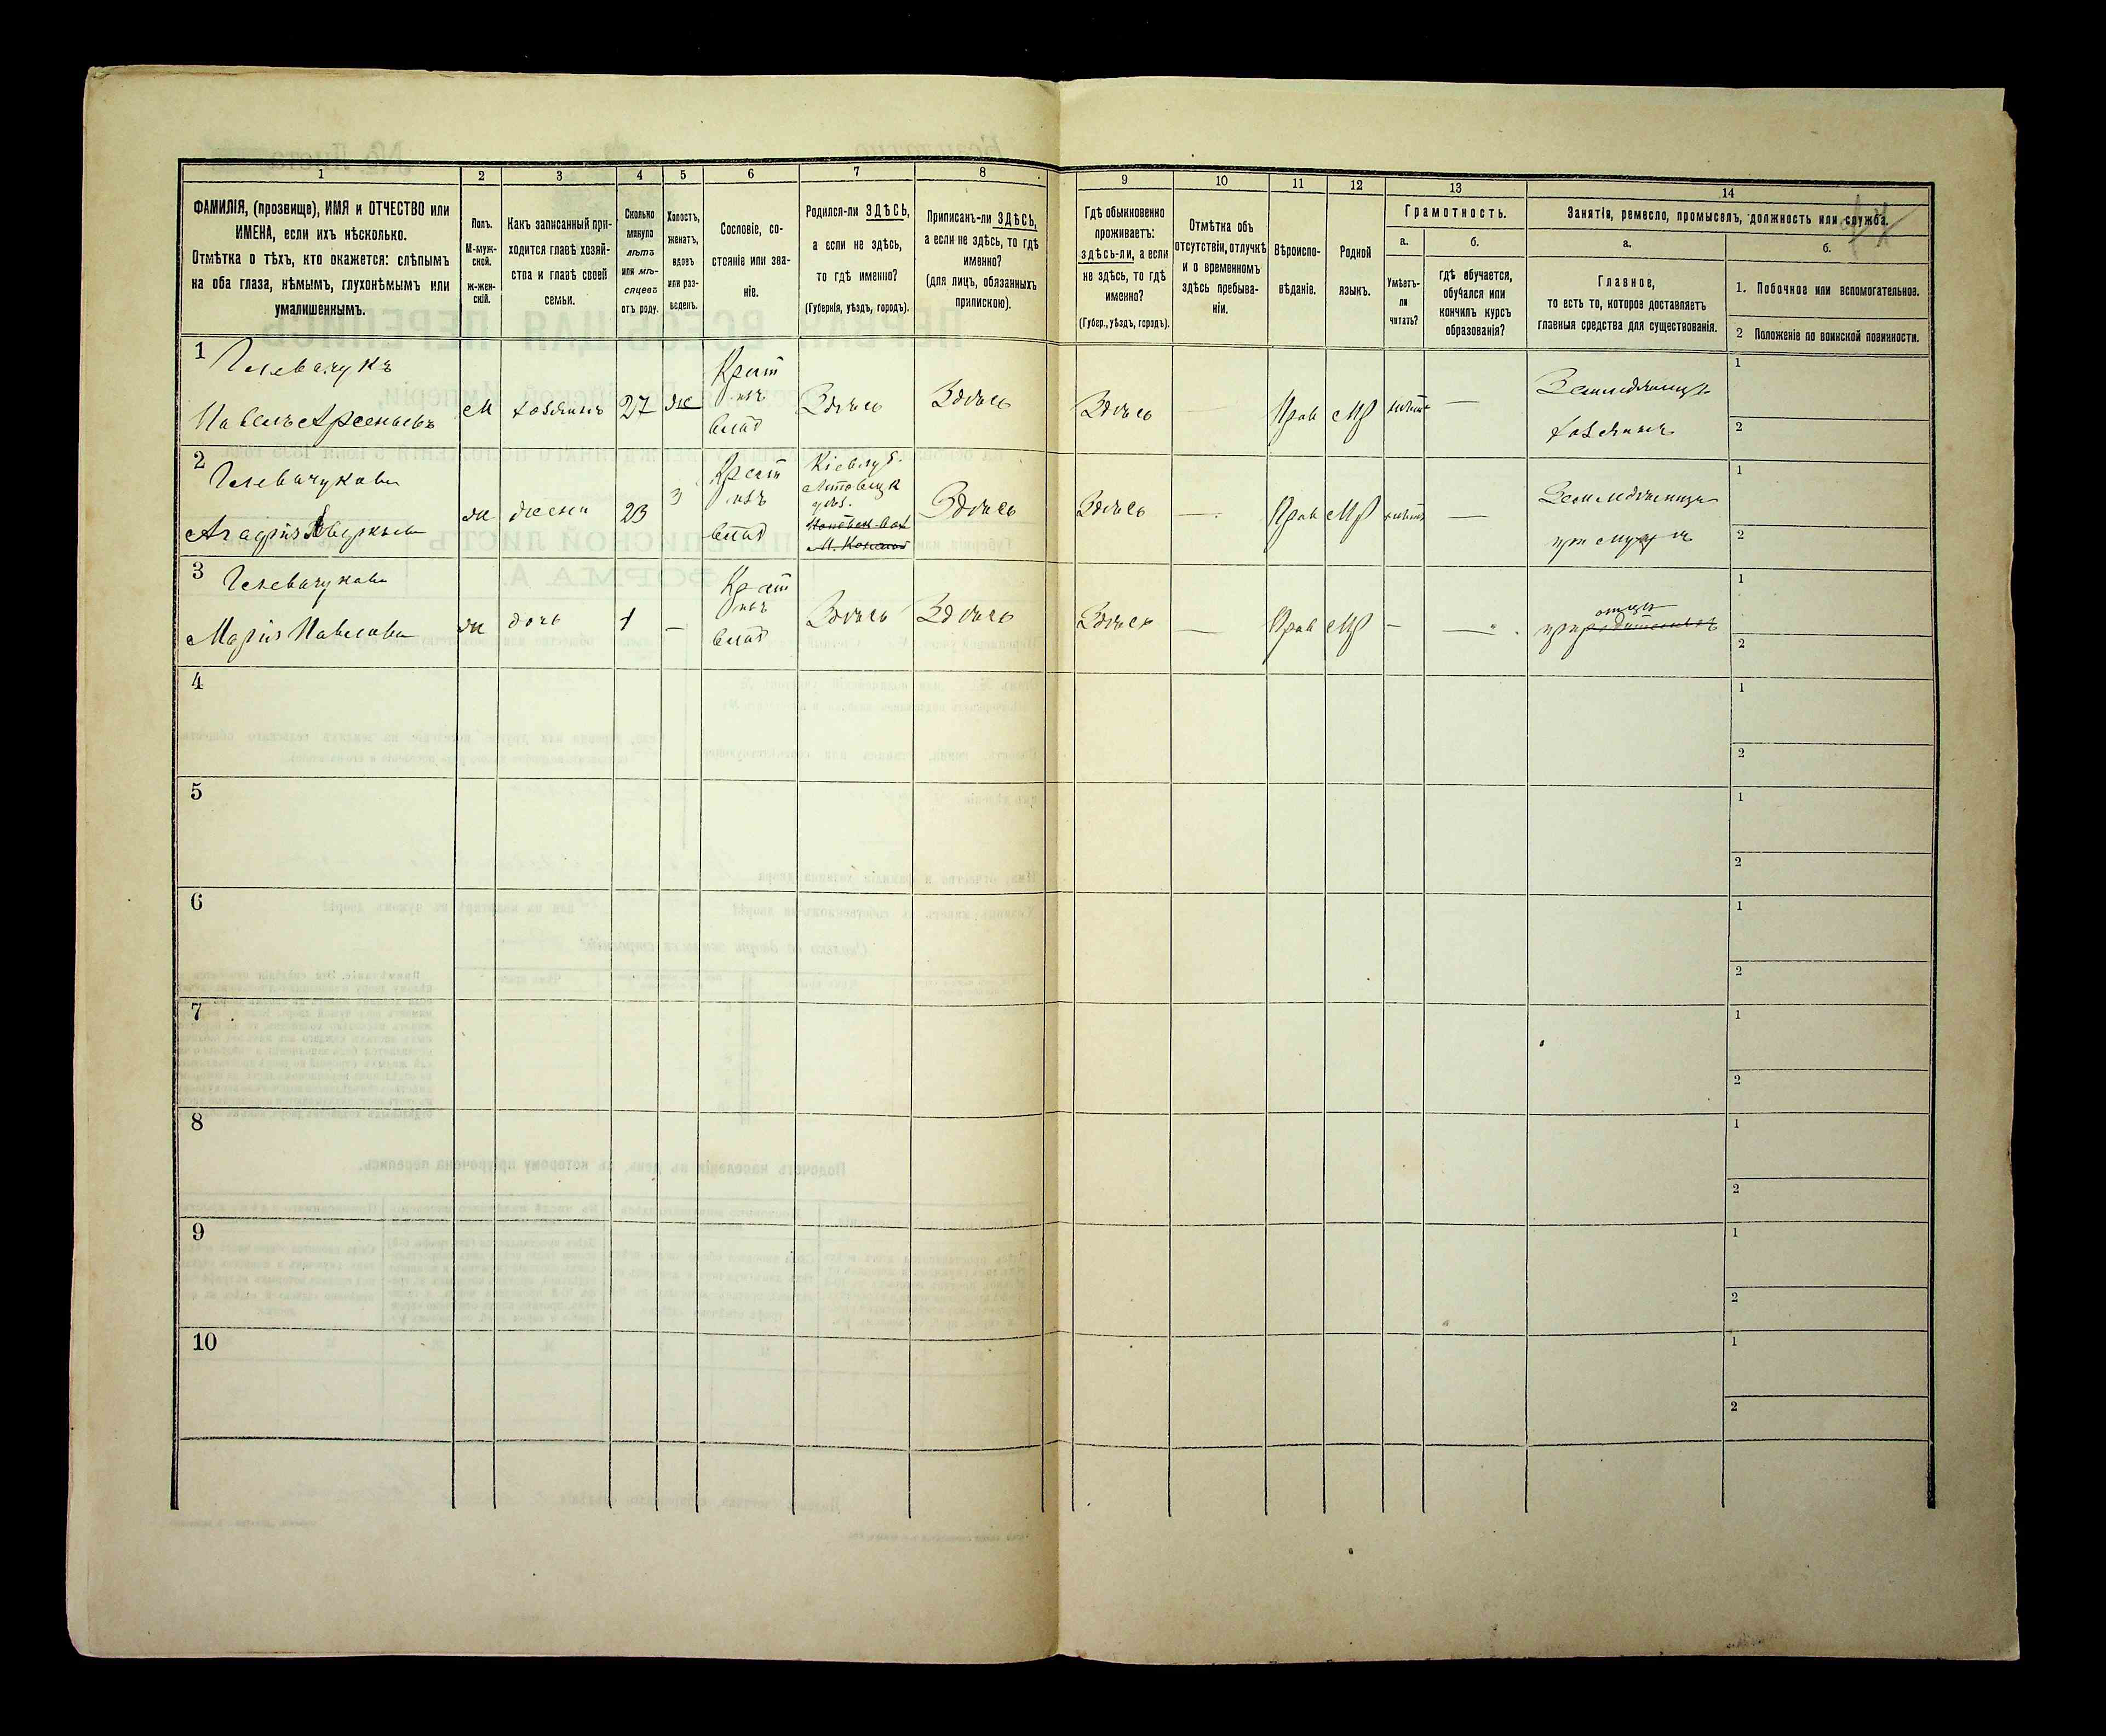 1 2 3 4 5 6 7 8 9 10 11 12 13 14
ФАМИЛІЯ, (прозвище), ИМЯ и ОТЧЕСТВО или
ИМЕНА, если ихъ нѣсколько.
Отмѣтка о тѣхъ, кто окажется: слѣпымъ
на оба глаза, нѣмымъ, глухонѣмымъ или
умалишеннымъ.
Полъ.
М-муж-
ской.
ж-жен-
скій.
Какъ записанный при-
ходится главѣ хозяй-
ства и главѣ своей
семьи.
Сколько
минуло
лѣтъ
или мѣ-
сяцевъ
отъ роду.
Холостъ,
женатъ,
вдовъ
или раз-
веденъ.
Сословіе, со-
стояніе или зва-
ніе.
Родился-ли ЗДѢСЬ,
а если не здѣсь,
то гдѣ именно?
(Губернія, уѣздъ, городъ).
Приписанъ-ли ЗДѢСЬ,
а если не здѣсь, то гдѣ
именно?
(для лицъ, обязанныхъ
припискою).
Гдѣ обыкновенно
проживаетъ:
здѣсь-ли, а если
не здѣсь, то гдѣ
именно?
(Губер., уѣздъ, городъ).
Отмѣтка объ
отсутствіи, отлучкѣ
и о временномъ
здѣсь пребыва-
ніи.
Вѣроиспо-
вѣданіе.
Родной
языкъ.
Грамотность.
а.
Умѣетъ-
ли
читать?
б.
гдѣ обучается,
обучался или
кончилъ курсъ
образованія?
Занятія, ремесло, промыселъ, должность или служба.
а.
Главное,
то есть то, которое доставляетъ
главныя средства для существованія.
б.
1. Побочное или вспомогательное.
2 Положеніе по воинской повинности.
1
Павелъ Арсеньевъ
М
хозяинъ
27
ж
Крест
изъ
влад
Здѣсь
Здѣсь
Здѣсь
—
Прав
МР
—
хозяинъ
1
2
2
ж
жена
23
З
Крест
изъ
влад
Кіев. губ.
Здѣсь
Здѣсь
—
Прав
МР
—
при мужѣ
1
2
3
Марія Павлова
ж
дочь
1
—
Крест
изъ
влад
Здѣсь
Здѣсь
Здѣсь
—
Прав
МР
—
—
при отцѣ
1
2
4
1
2
5
1
2
6
1
2
7
1
2
8
1
2
9
1
2
10
1
2